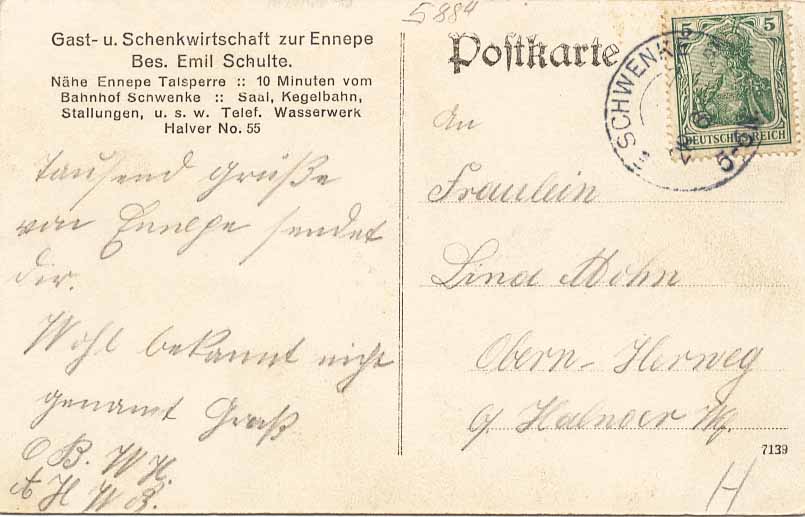 5884
Gast- u. Schenkwirtschaft zur Ennepe
Bes. Emil Schulte.
Nähe Ennepe Talsperre :: 10 Minuten vom
Bahnhof Schwenke :: Saal, Kegelbahn,
Stallungen, u. s. w. Telef. Wasserwerk
Halver No. 55
Tausend grüße
von Ennepe sendet
dir.
Wohl bekannt nicht
genannt Gruß
B. W H.
H W B.
Postkarte
SCHWENKE
5 5
DEUTSCHES REICH
An
Fräulein
Lina Mohn
Obern-Herweg
7139
H